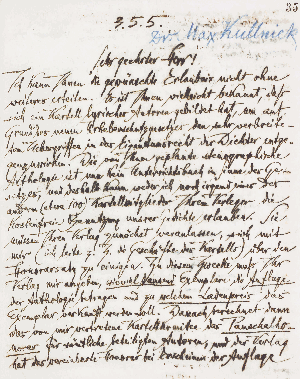 35
9.5.5.
Dr. Max Kullnick
Sehr geehrter Herr!
Ich kann Ihnen die gewünschte Erlaubnis nicht ohne
weiteres erteilen. Es ist Ihnen vielleicht bekannt, daß
sich ein Kartell lyrischer Autoren gebildet hat, um auf
Grund des neuen Urheberrechtsgesetzes den sehr verbreite-
ten Uebergriffen in das Eigentumsrecht der Dichter entge-
genzuwirken. Die von Ihnen geplante stenographische
Anthologie ist nun kein Unterrichtsbuch im Sinne des Ge-
setzes, und deshalb kann weder ich noch irgend einer der
andern (etwa 100) Kartellmitglieder Ihrem Verleger die
kostenfreie Benutzung unsrer Gedichte erlauben. Sie
müssen Ihren Verlag zunächst veranlassen, sich mit
mir (ich leite z. Z. die Geschäfte des Kartells) über den
Honorarsatz zu einigen. Zu diesem Zwecke muß Ihr
Verlag mir angeben, wieviel tausend Exemplare die Auflage
der Anthologie betragen und zu welchem Ladenpreis das
Exemplar verkauft werden soll. Danach berechnet dann
das von mir vertretene Kartellkomitee das Pauschalho-
norar für sämtliche beteiligten Autoren, und der Verlag
hat das vereinbarte Honorar bei Erscheinen der Auflage